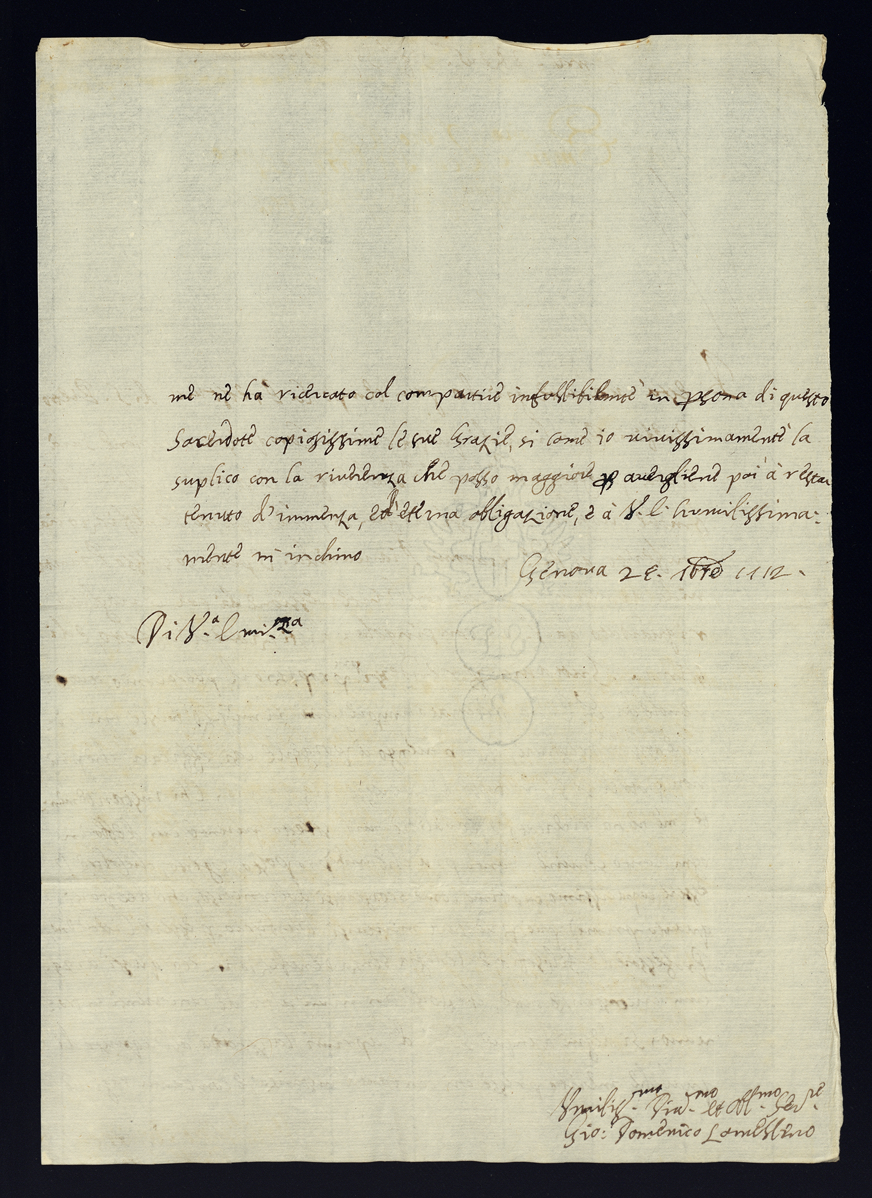 me ne hà ricercato col compartire infallibilmte in psona di questo
Sacerdote copiosissime le sue Grazie, si come io vivissimamente la
suplico con la riverenza che posso maggiore p avergliene poi à restar
tenuto d'immenza, et d'eterna obligazione, e à V. E. humilissima-
mente m'inchino
Genova 1712.
Di V.a Emi.za
Umiliss.mo Div.mo et Obl.mo Ser.re
Gio: Domenico Lomellino